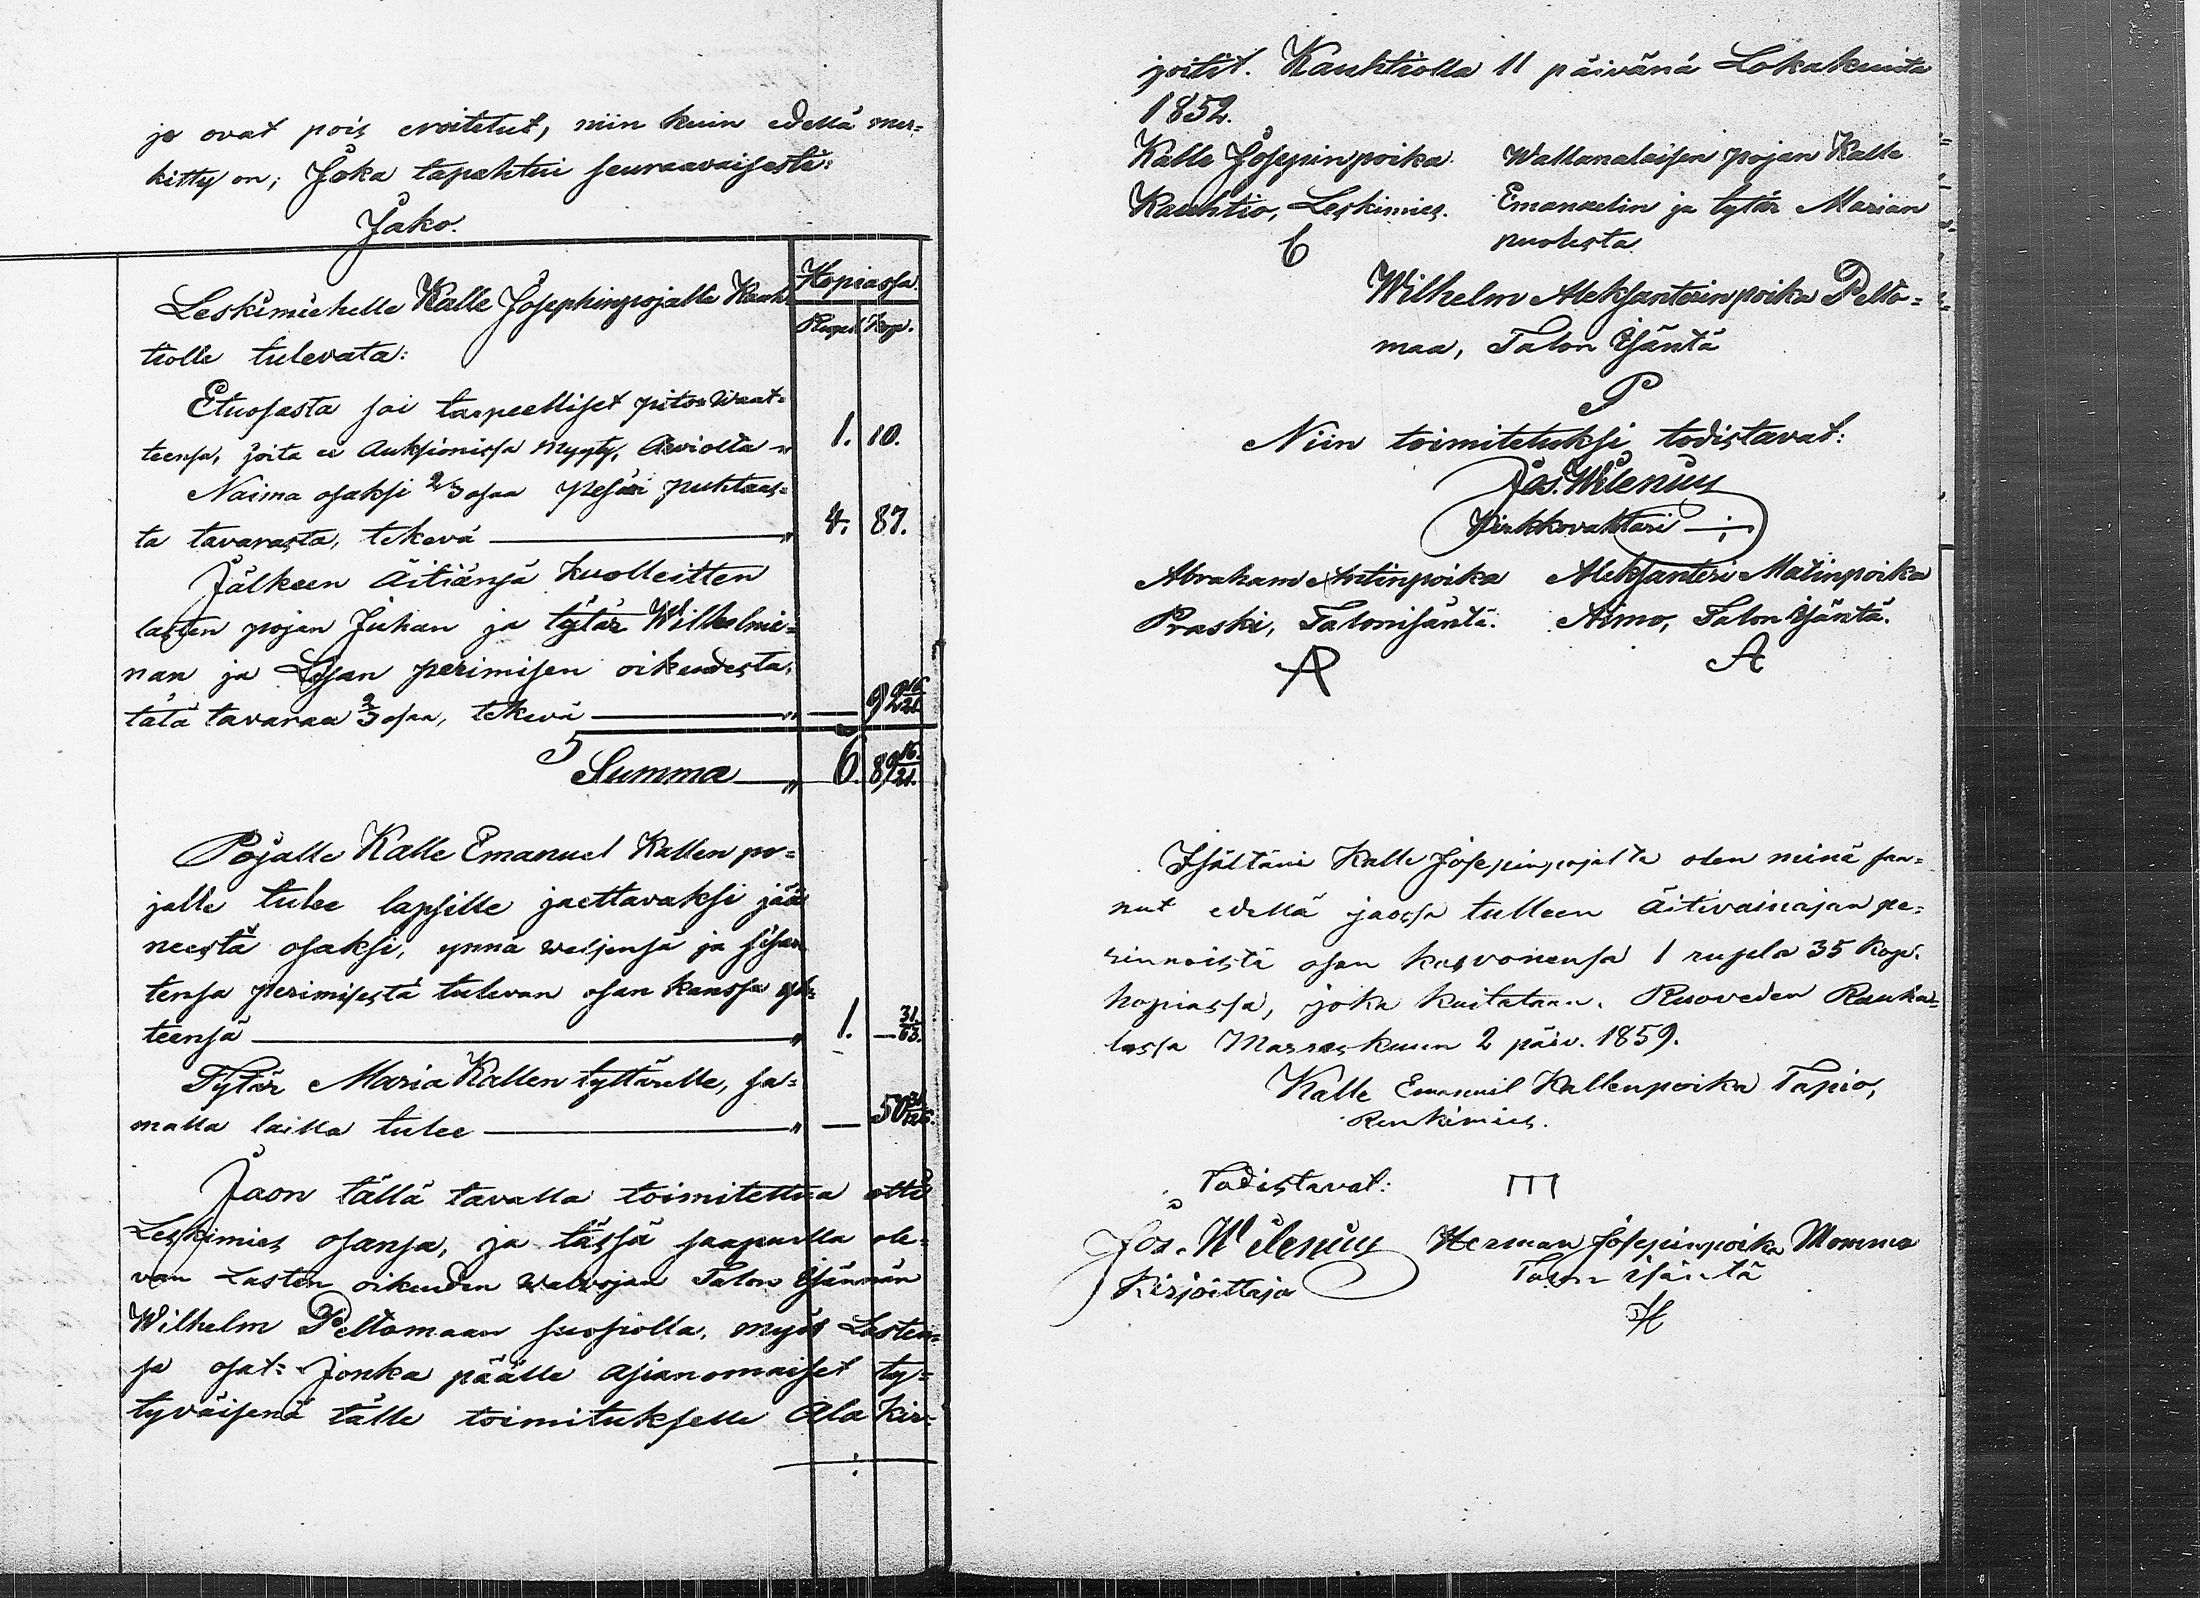 ja ovat pois eroitetut, niin kuin edellä mer=
kitty on; Joka tapahtui seuraavaisesti:
Jako.
Hopiassa.
Rupel. Kop.
Leskimiehelle Kalle Josephinpojalle Kauh=
tiolle tulevata:
Etuosasta sai tarpeelliset pito=Waat=
teensa, joita ei Auksionissa myyty, Arviolta " 1. 10.
Naima osaksi 2/3 osaa pesän puhtaas=
ta tavarasta, tekevä — " 4. 87.
Jälkeen Äitiänsä kuolleitten
lasten pojan Juhan ja tytär Wilhelmi=
nan ja Lisan perimisen oikeudesta,
tätä tavaraa 2/3 osaa, tekevä — " — 92 16/21.
Summa — " 6. 89 16/21.
Pojalle Kalle Emanuel Kallen po=
jalle tulee lapsille jaettavaksi jää
neestä osaksi, ynnä weljensä ja sisar
tensa perimisestä tulevan osan kanssa yh=
teensä — " 1. — 31/63.
Tytär Maria Kallen tyttärelle, sa=
malla lailla tulee — " — 50
Jaon tällä tavalla toimitettua otti
Leskimies osansa, ja tässä saapuilla ole=
van Lasten oikeuden walvojan Talon Isännän
Wilhelm Peltomaan suosiolla, myös Lasten=
sa osat: Jonka päälle asianomaiset ty=
tyväisenä tälle toimitukselle Ala kir=
joitit. Kauhtiolla 11 päivänä Lokakuuta
1852.
Kalle Josepinpoika Wallanalaisen pojan Kalle
Kauhtio, Leskimies. Emanuelin ja tytär Marian
puolesta
Wilhelm Aleksanterinpoika Pelto=
maa, Talon Isäntä
P
Niin toimitetuksi todistavat:
Jos. Wilenius
Kirkkovahtari
Abraham Antinpoika Aleksanteri Matinpoika
Praski, Talonisäntä. Aimo, Talon Isäntä.
AP A
Isältäni Kalle Josepinpojalta olen minä saa=
nut edellä jaossa tulleen Äitivainajan pe=
rinnöistä osan kasvoinensa 1 rupla 35 kop.
hopiassa, joka kuitataan. Ruoveden Rauha=
lassa Marraskuun 2 päiv. 1859.
Kalle Emanuel Kallenpoika Tapio,
Renkimies.
Todistavat:
Jos. Wilenius Herman Josepinpoika Momma
Kirjoittaja Talon Isäntä
H